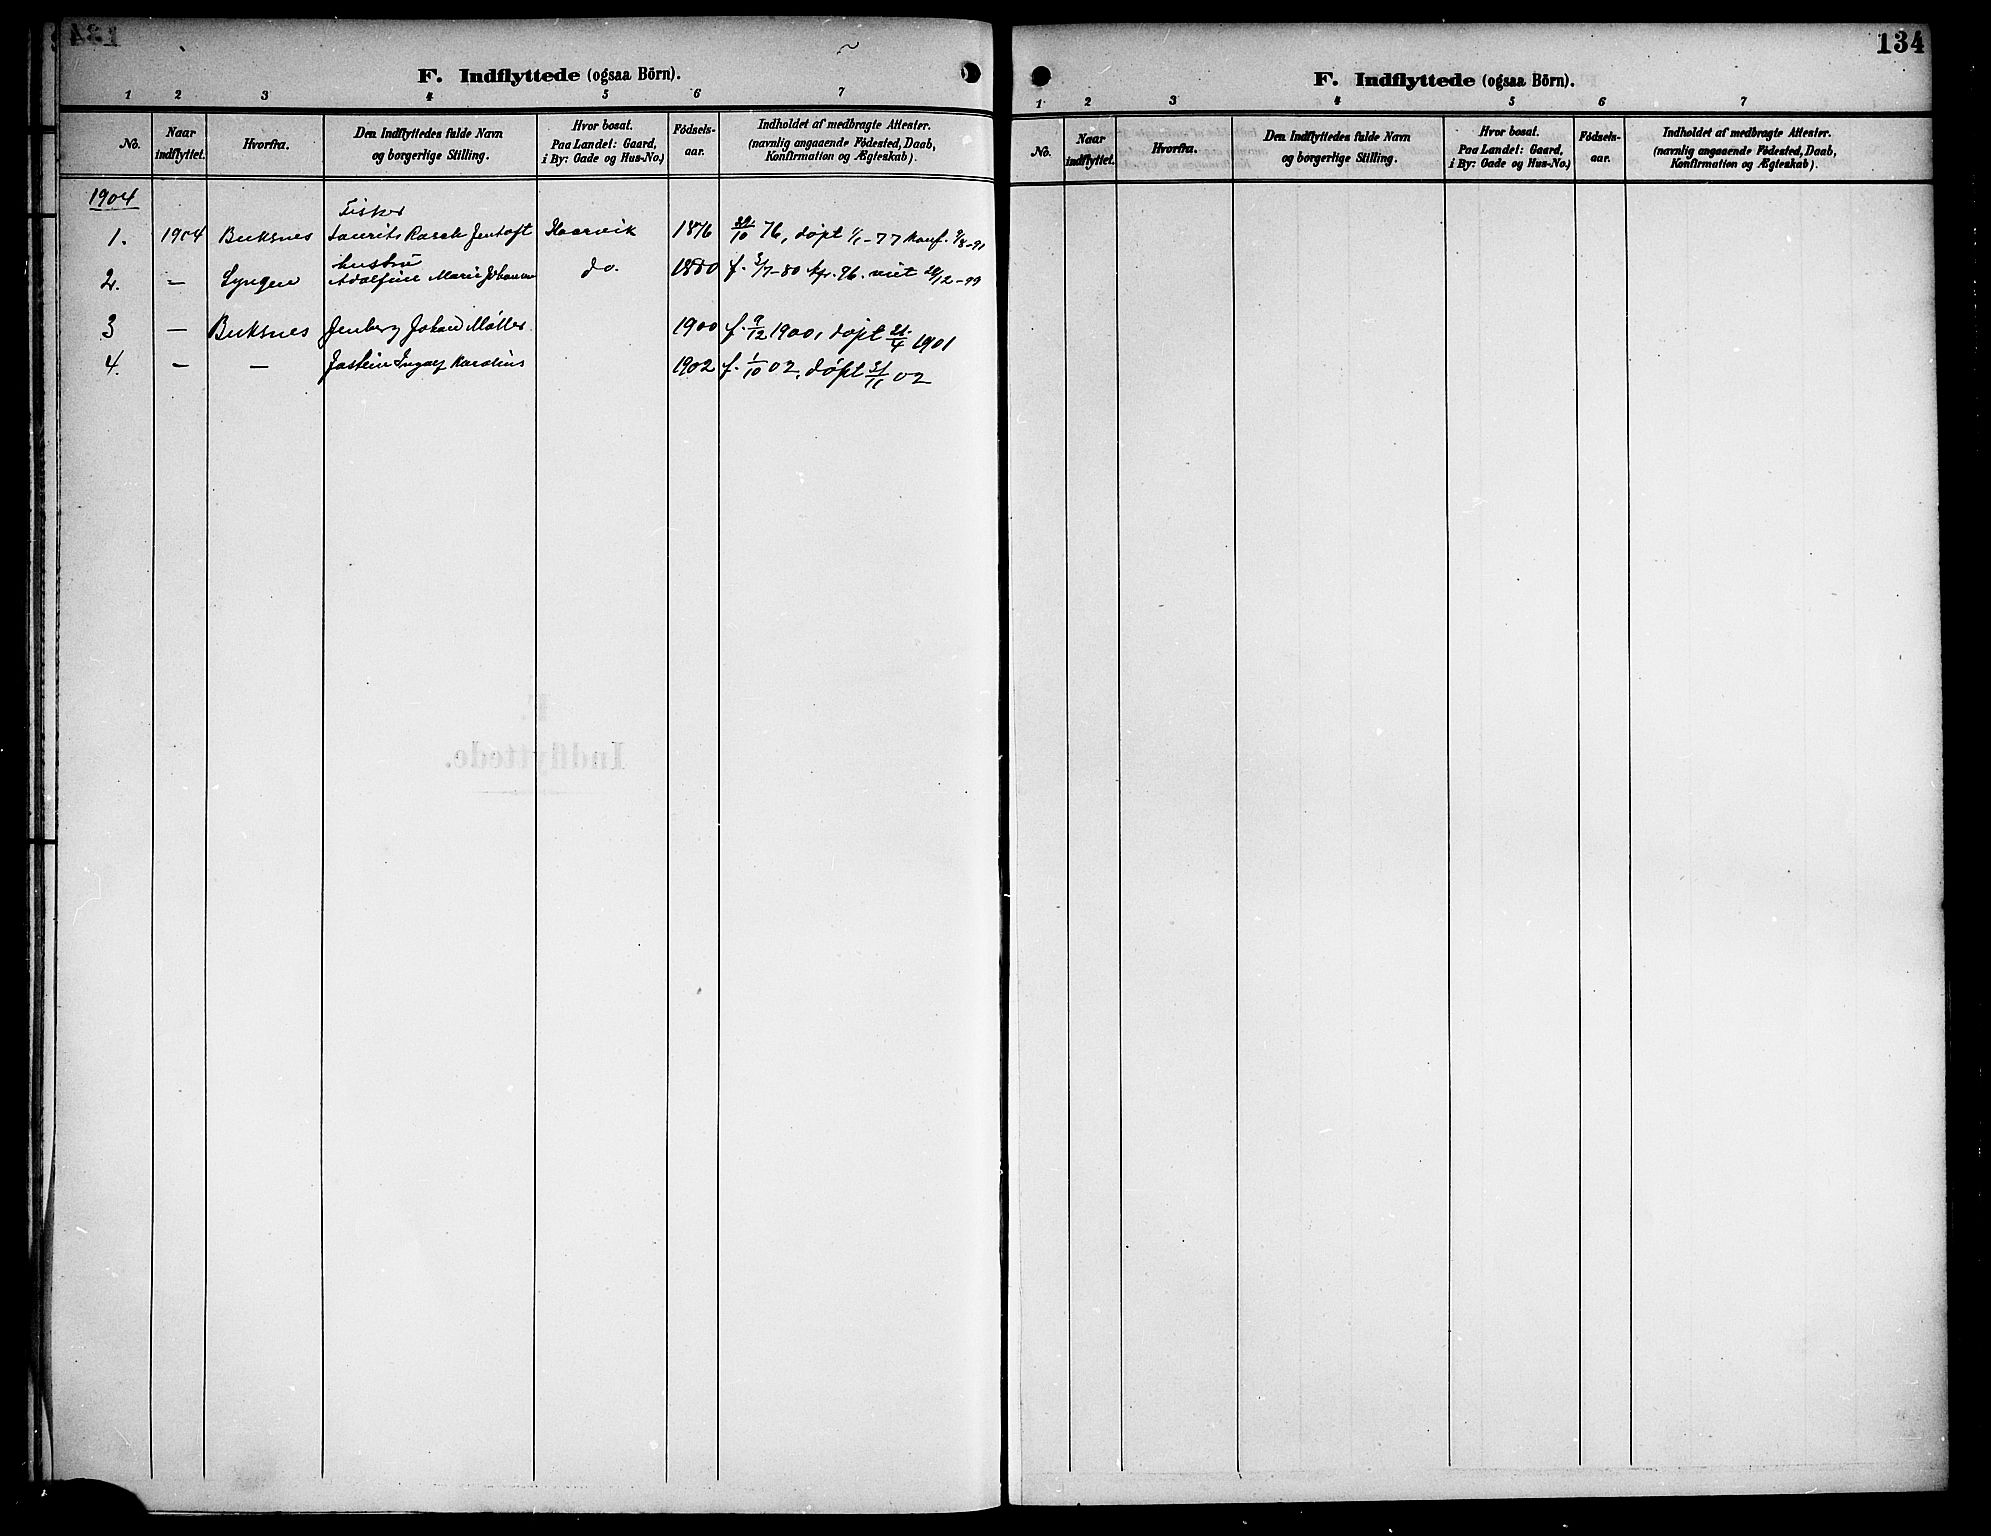 F. Indflyttede (ogsaa Börn).
1 2 3 4 5 6 7
No. Naar indflyttet. Hvorfra. Den Indflyttedes fulde Navn og borgerlige Stilling. Hvor bosat. Paa Landet: Gaard, i By: Gade og Hus-No.) Fødsels-aar. Indholdet af medbragte Attester. (navnlig angaaende Fødested, Daab, Konfirmation og Ægteskab).
1904
Fisker
1. 1904 Buksnes Laurits Rasch Jentoft 1876 29/10 76, døpt 1/1-77 konf. -91
hustru
2. — Lyngen Adolfine Marie Johansen do. 1880 f. 5/7-80 76. viet 26/12-99
3 — Buksnes Jenberg Johan Møller. 1900 f. 9/12 1900, døpt 21/4 1901
4. — — Jostein Ingolf Karolius 1902 f. 1/10 02, døpt /11 02
134
F. Indflyttede (ogsaa Börn).
1 2 3 4 5 6 7
No. Naar indflyttet. Hvorfra. Den Indflyttedes fulde Navn og borgerlige Stilling. Hvor bosat. Paa Landet: Gaard, i By: Gade og Hus-No.) Fødsels-aar. Indholdet af medbragte Attester. (navnlig angaaende Fødested, Daab, Konfirmation og Ægteskab).